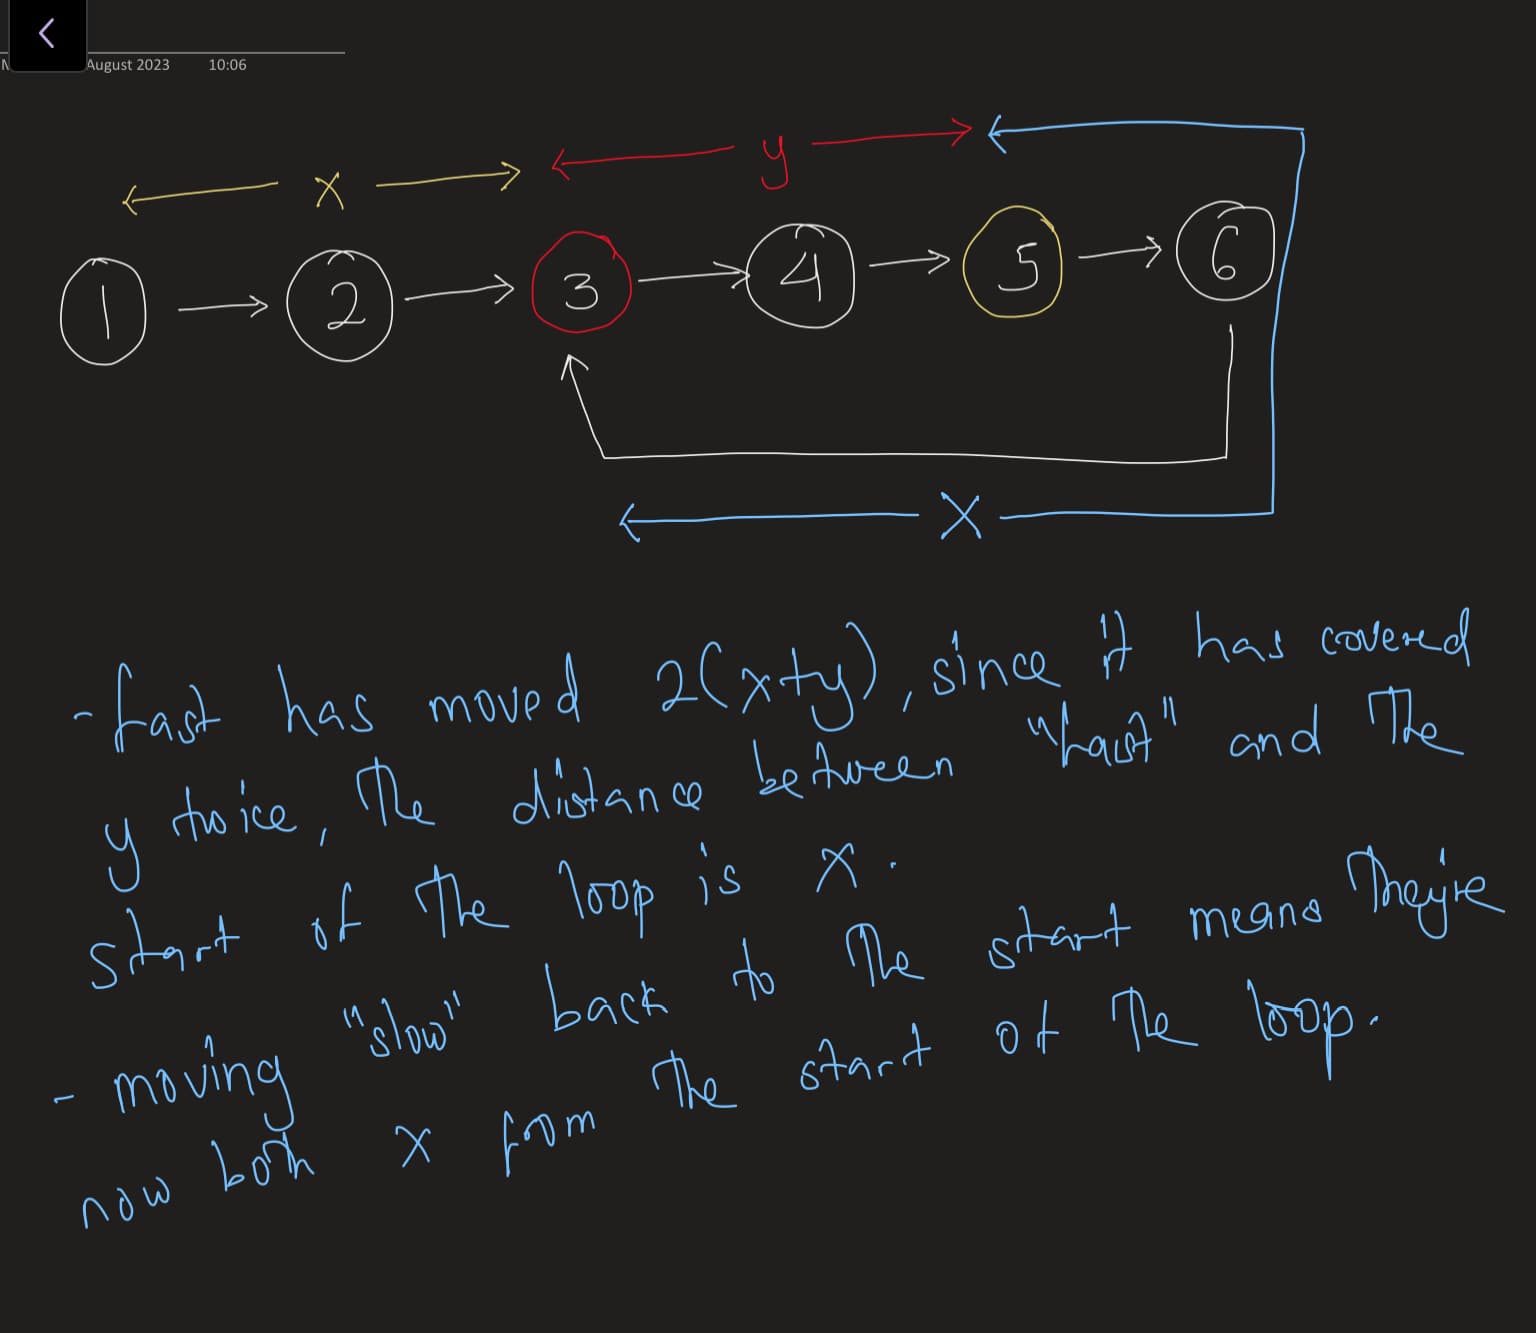 August 2023 10:06
x y
1 2 3 4 5 6
X
- fast has moved 2(x+y), since it has covered
y twice, the distance between "fast" and the
start of the loop is x.
- moving "slow" back to the start means they're
now both x from the start of the loop.